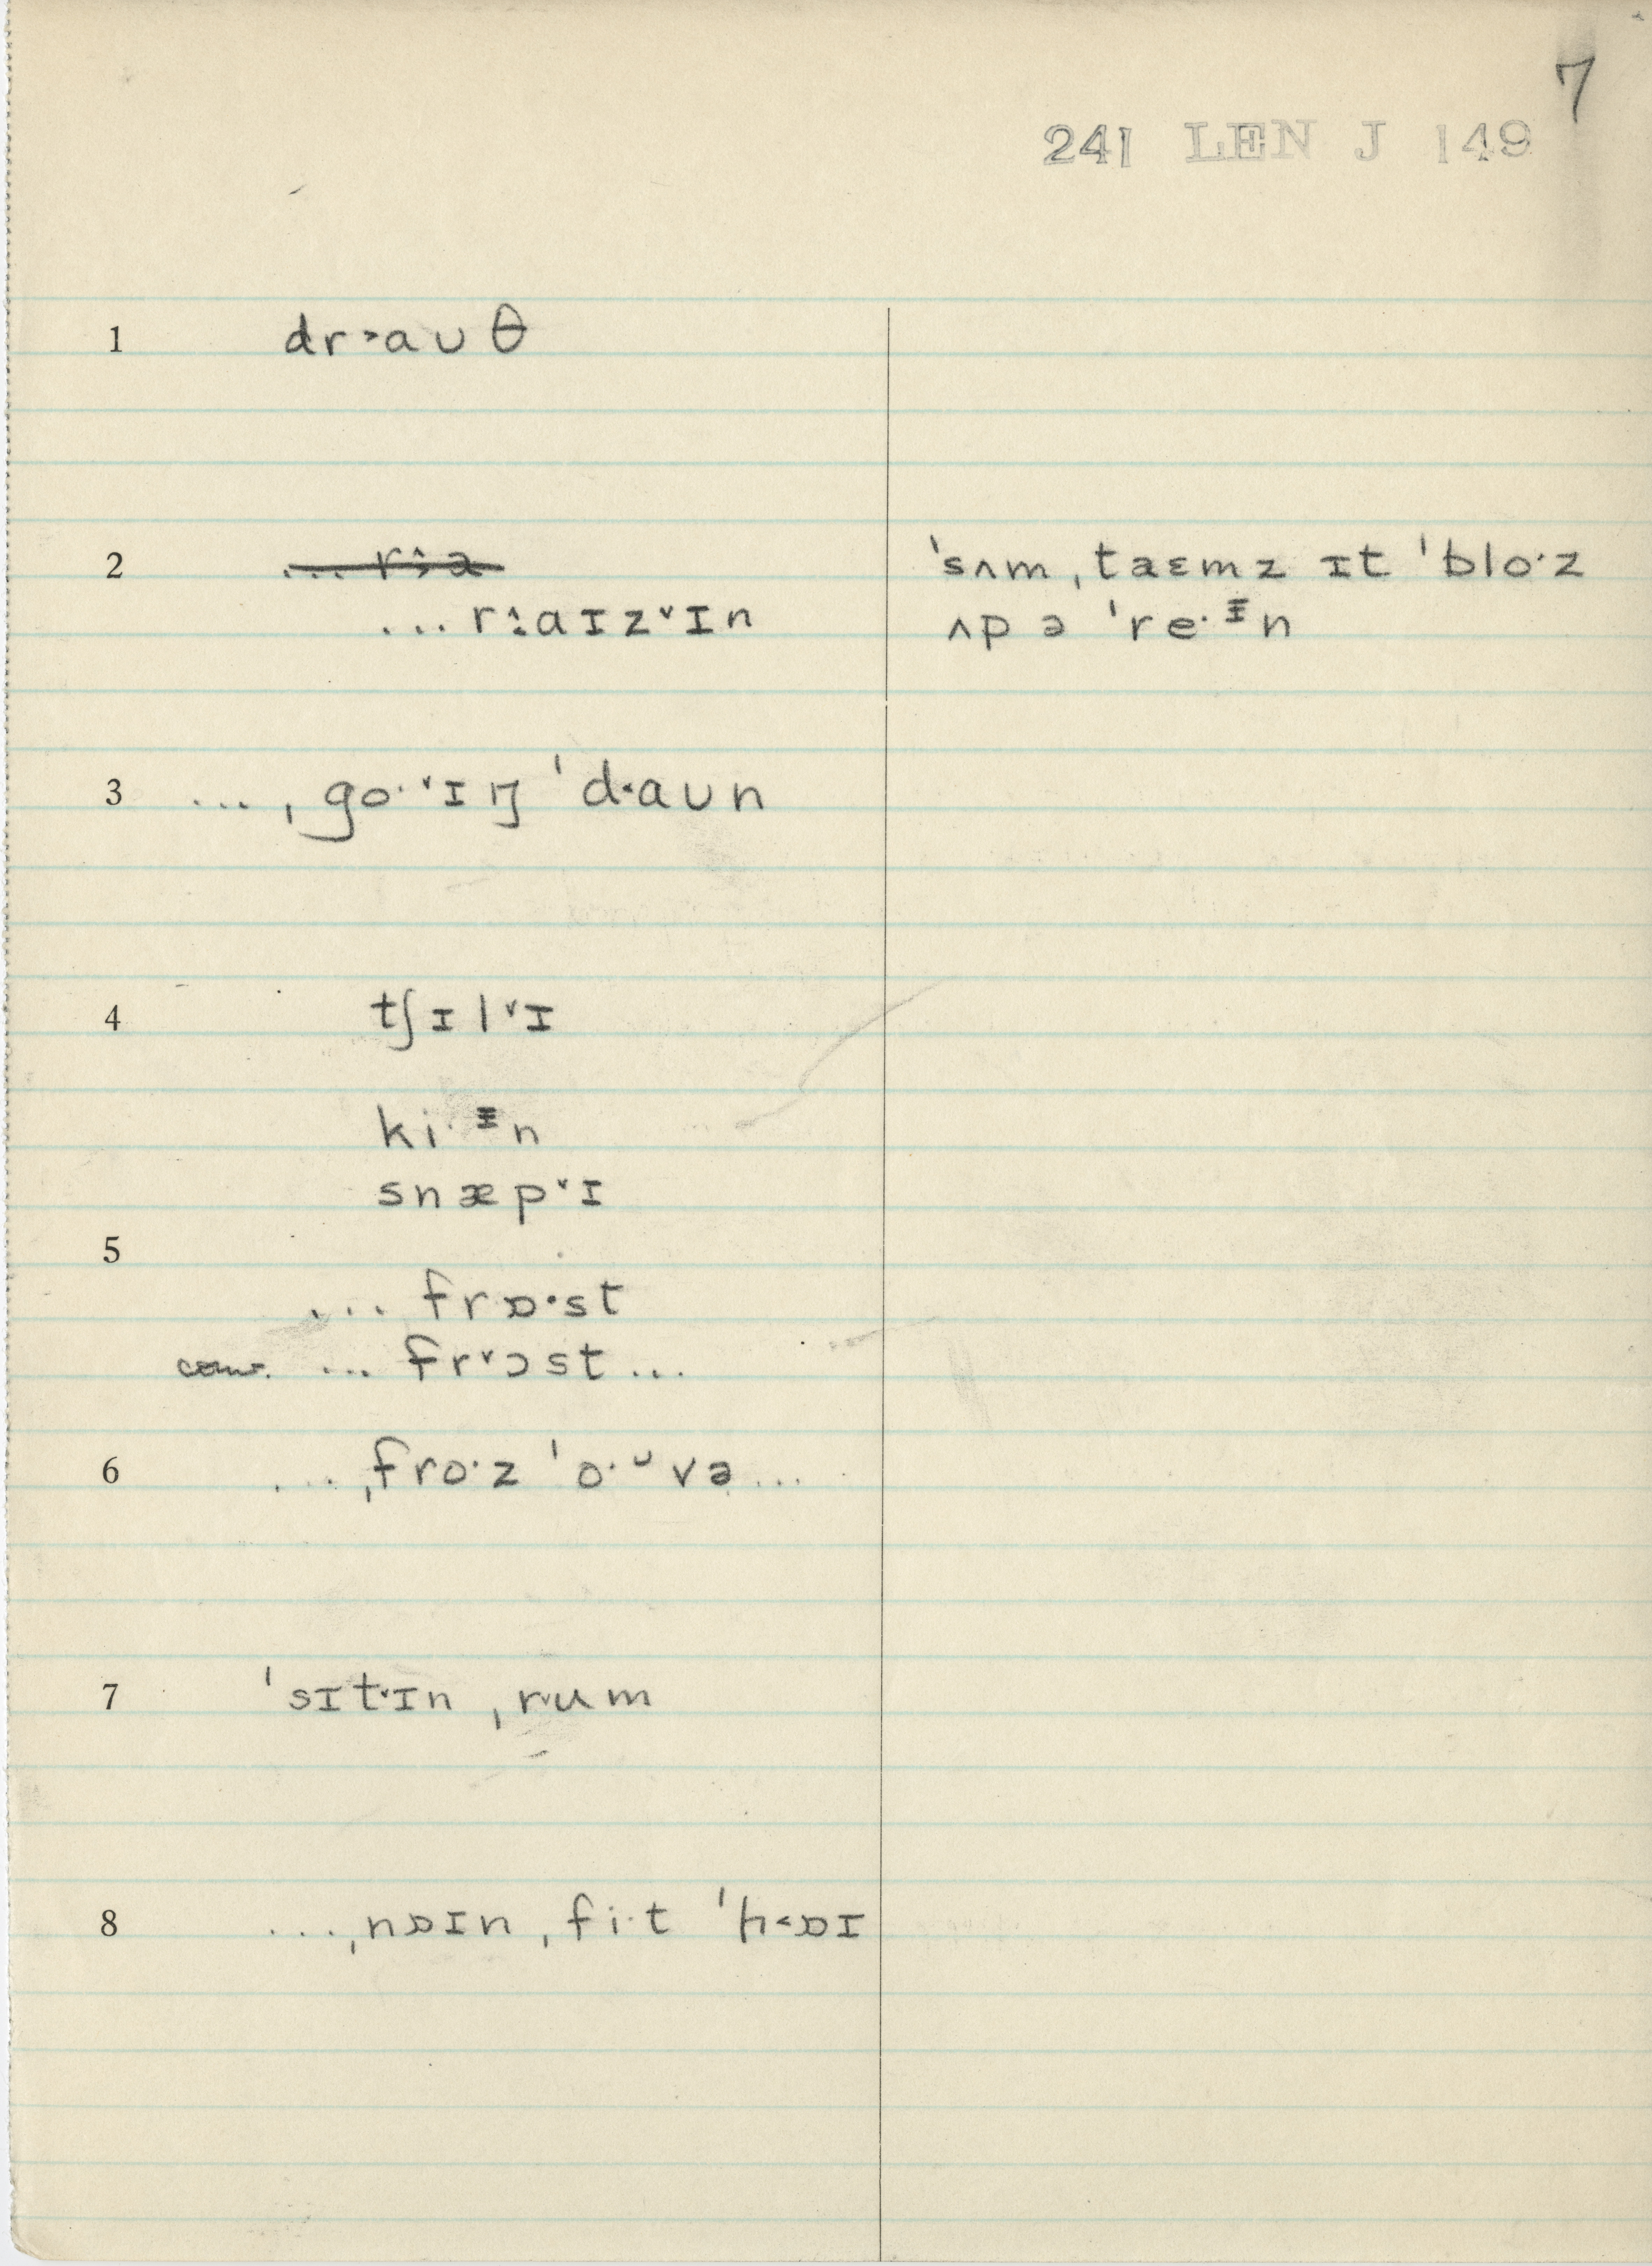 7
241 LEN J 149
1 dr˃aʊθ
2 ... r˔˃a
... r˔˃aɪz˅ɪn
ˈsʌmˌtaɛmz ɪt ˈblo·z
ʌp ə ˈre·ᶦn
3 ...ˌgo·˅ɪŋ ˈd˂aʊn
4 tʃɪl˅ɪ
ki·ᶦn
snæp˅ɪ
5
... frɒ·st
conv. ... fr˅ɔst ...
6 ...ˌfro·z ˈo·ᶷvə ...
7 ˈsɪt˅ɪnˌr˅um
8 ...ˌnɒɪnˌfi·t ˈh˂ɒɪ